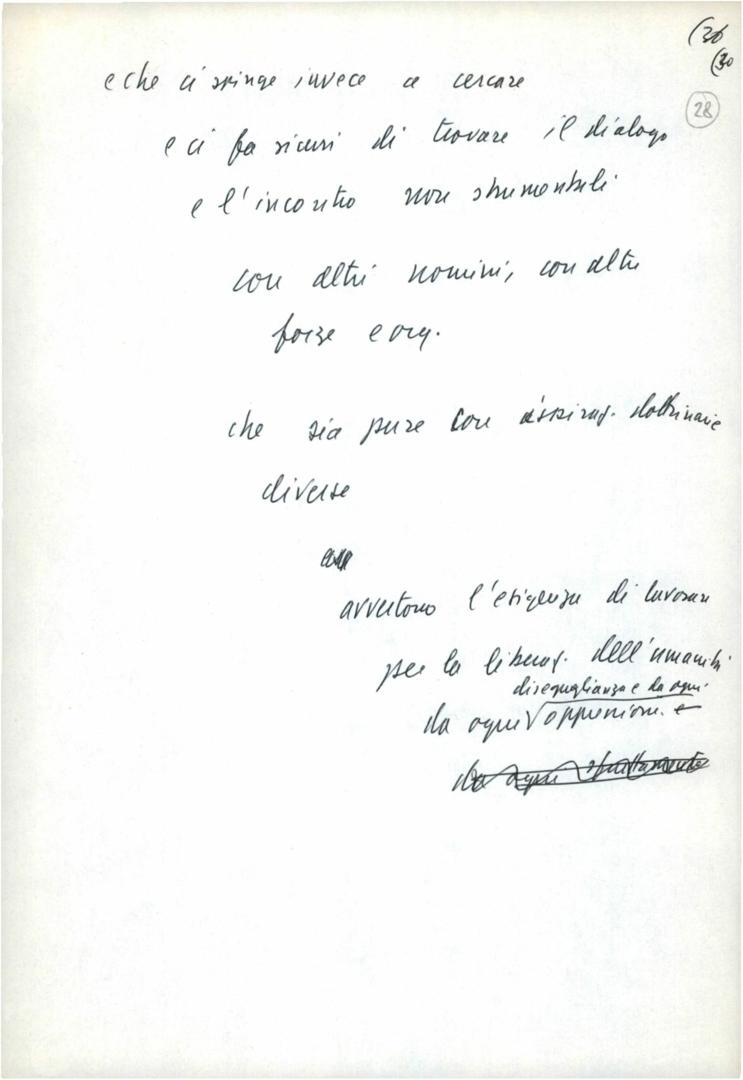 (36
(30
28
e che ci spinge invece a cercare
e ci fa sicuri di trovare il dialogo
e l'incontro non strumentali
con altri uomini, con altre
forze e org.
che sia pure con ispiraz. dottrinarie
diverse
avvertono l'esigenza di lavorare
per la liberaz. dell'umanità
diseguaglianza e da ogni
da ogni oppressione. e
da ogni sfruttamento